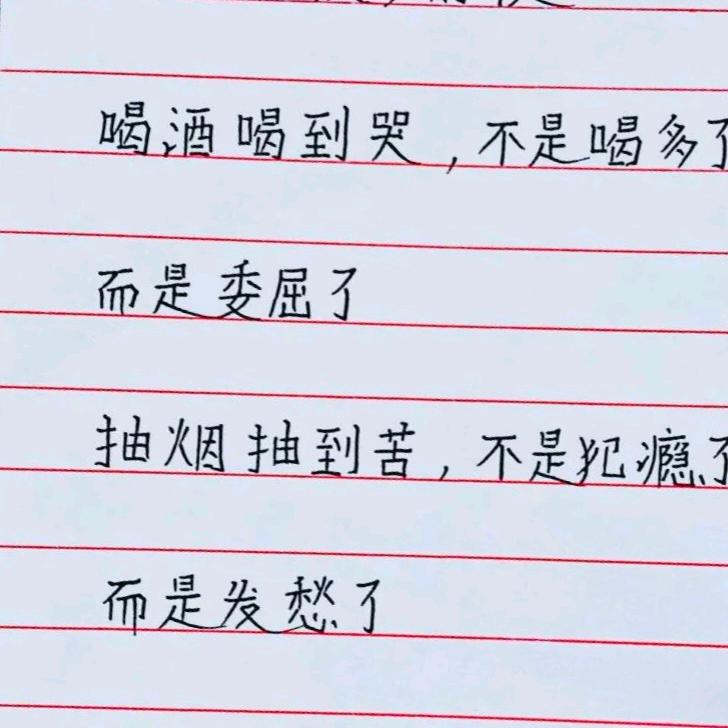 喝酒喝到哭，不是喝多了
而是委屈了
抽烟抽到苦，不是犯瘾了
而是发愁了